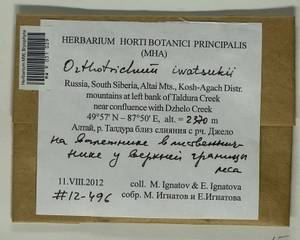 HERBARIUM HORTI BOTANICI PRINCIPALIS
(MHA)
Orthotrichum iwatsukii
Russia, South Siberia, Altai Mts., Kosh-Agach Distr.
mountains at left bank of Taldura Creek
near confluence with Dzhelo Creek
49°57' N – 87°50' E, alt. = 2370 m
Алтай, р. Талдура близ слияния с рч. Джело
на валежнике в лиственнич-
нике у верхней границы
леса
11.VIII.2012 coll. M. Ignatov & E. Ignatova
#12-496 собр. М. Игнатов и Е.Игнатова